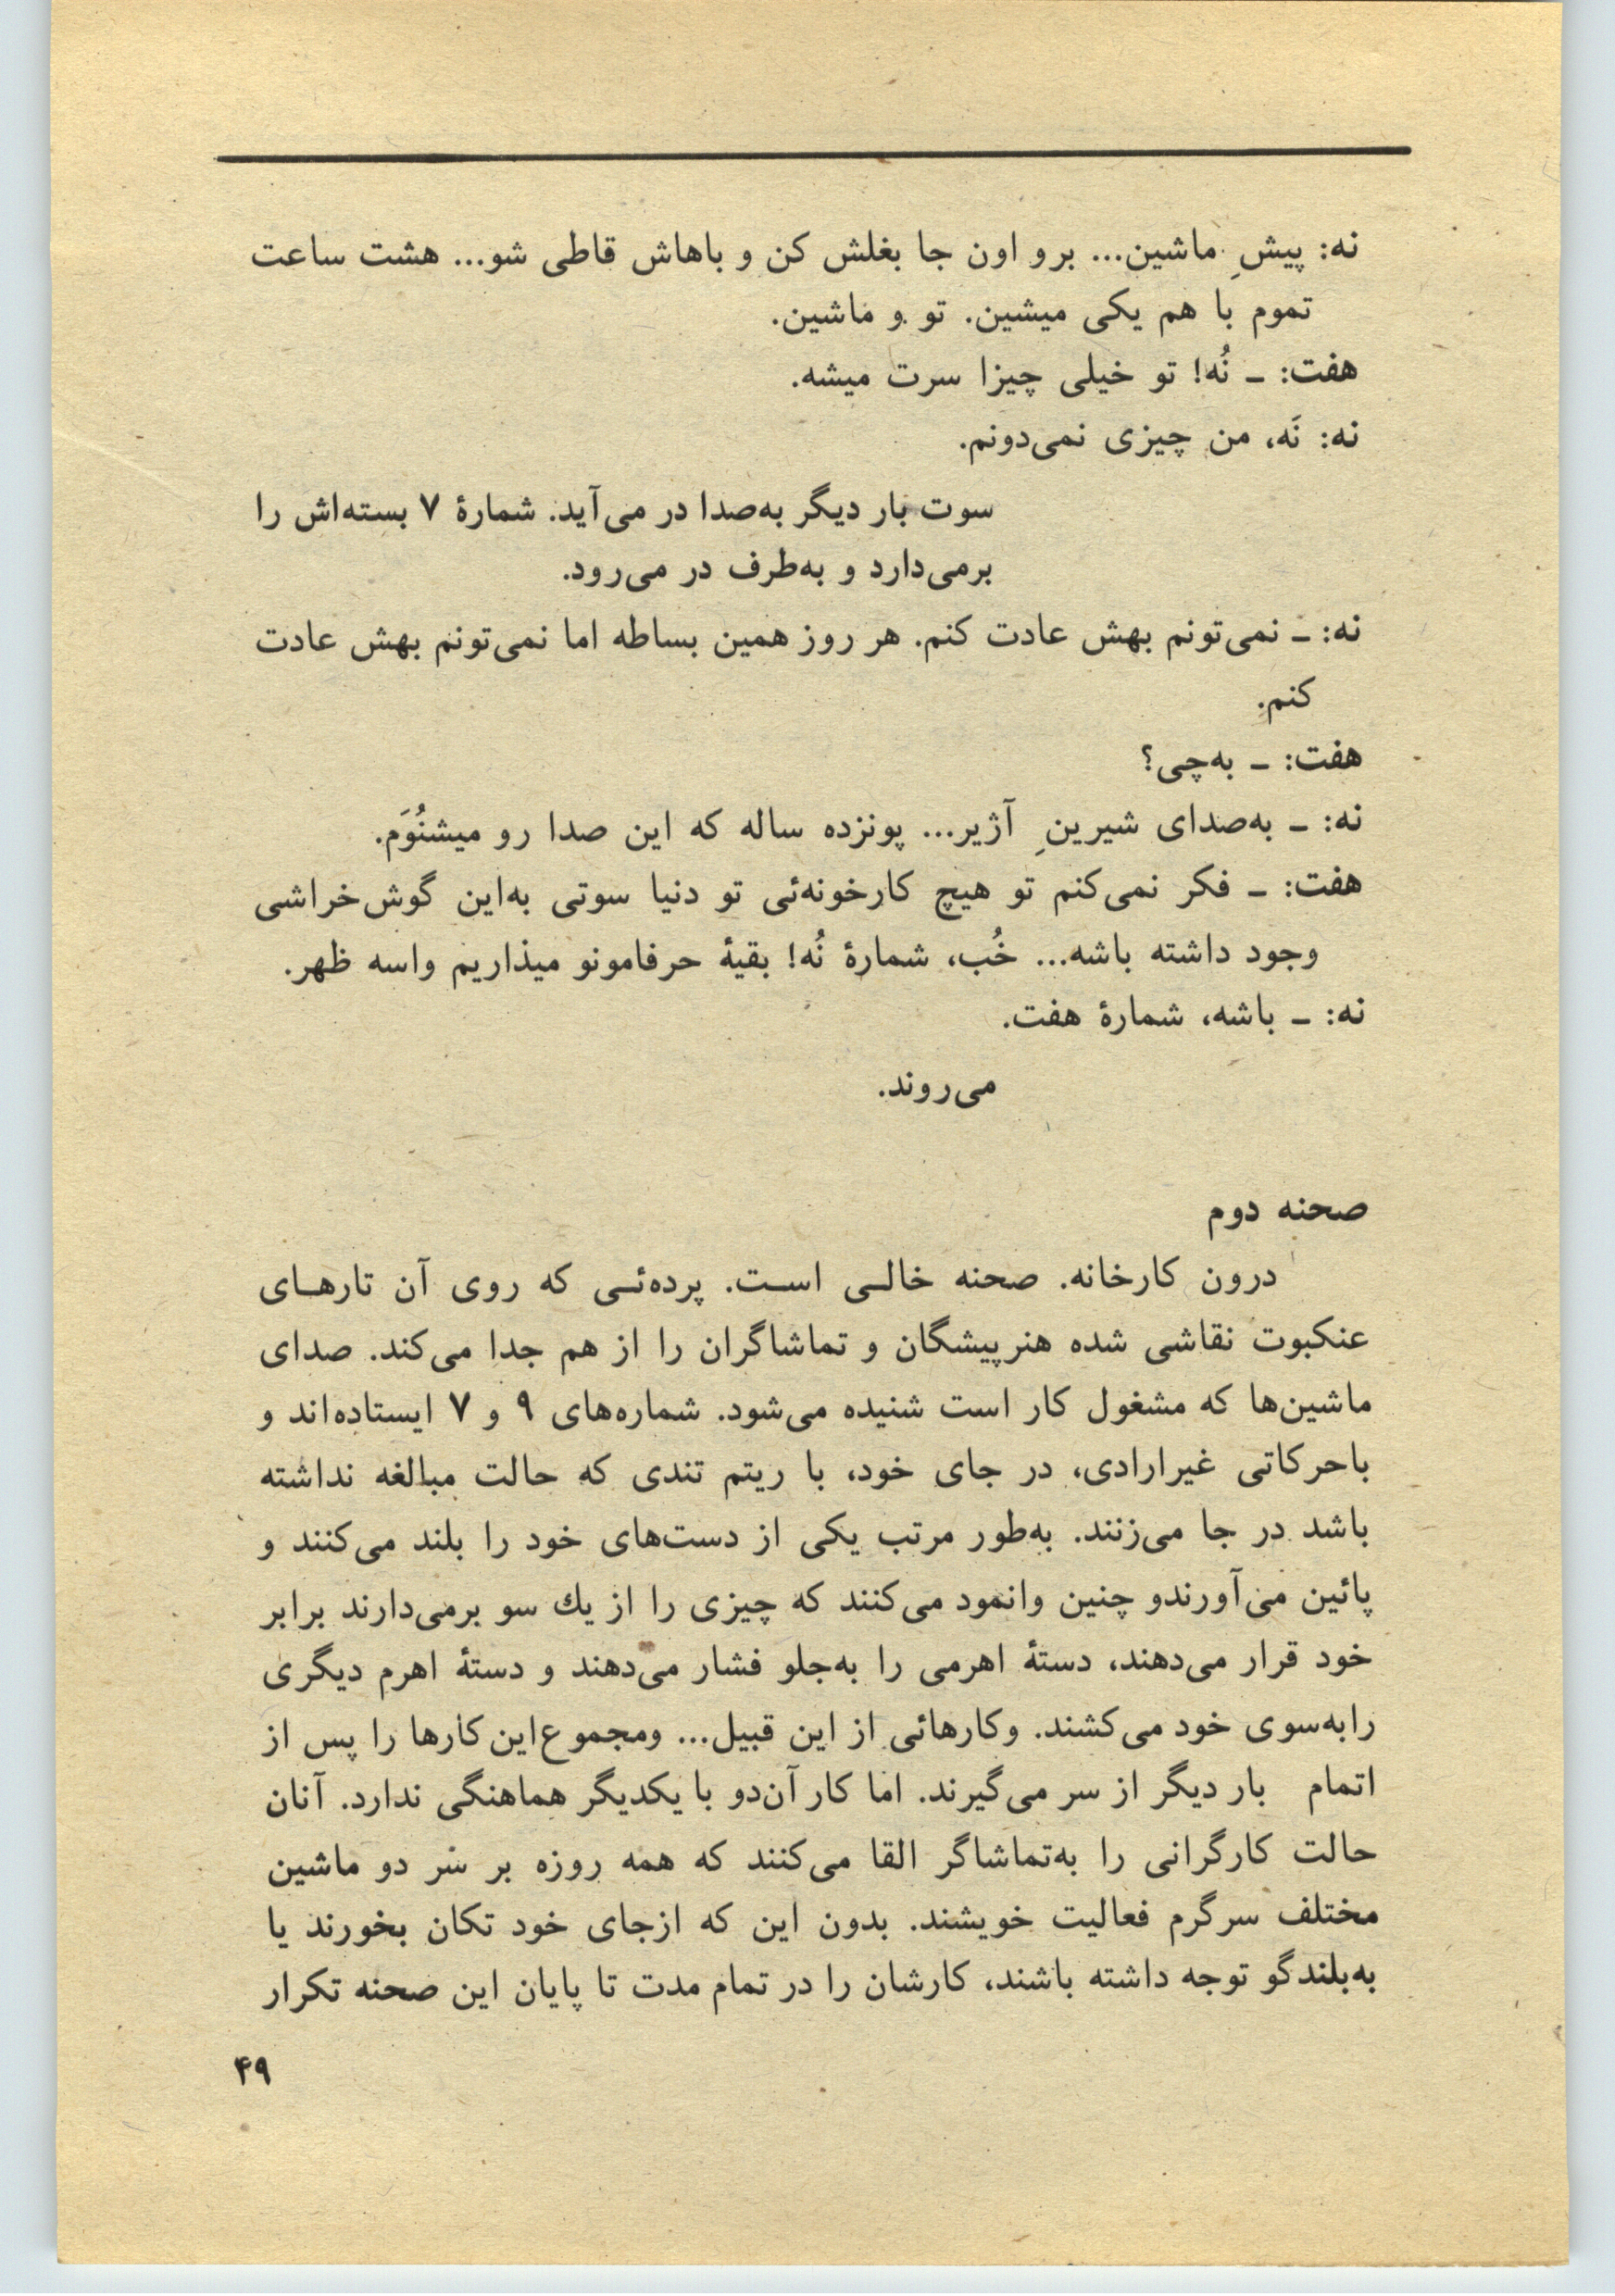 نه: پیشِ ماشین... برو اون جا بغلش کن و باهاش قاطی شو... هشت ساعت
تموم با هم یکی میشین. تو و ماشین.
هفت: ـ نُه! تو خیلی چیزا سرت میشه.
نه: نَه، من چیزی نمی‌دونم.
سوت بار دیگر به‌صدا در می‌آید. شمارهٔ ۷ بسته‌اش را
برمی‌دارد و به‌طرف در می‌رود.
نه: ـ نمی‌تونم بهش عادت کنم. هر روز همین بساطه اما نمی‌تونم بهش عادت
کنم.
هفت: ـ به‌چی؟
نه: ـ به‌صدای شیرینِ آژیر... پونزده ساله که این صدا رو میشنُوَم.
هفت: ـ فکر نمی‌کنم تو هیچ کارخونه‌ئی تو دنیا سوتی به‌این گوش‌خراشی
وجود داشته باشه... خُب، شمارهٔ نُه! بقیهٔ حرفامونو میذاریم واسه ظهر.
نه: ـ باشه، شمارهٔ هفت.
می‌روند.
صحنه دوم
درون کارخانه. صحنه خالـی اسـت. پرده‌ئـی که روی آن تارهـای
عنکبوت نقاشی شده هنرپیشگان و تماشاگران را از هم جدا می‌کند. صدای
ماشین‌ها که مشغول کار است شنیده می‌شود. شماره‌های ۹ و ۷ ایستاده‌اند و
باحرکاتی غیرارادی، در جای خود، با ریتم تندی که حالت مبالغه نداشته
باشد در جا می‌زنند. به‌طور مرتب یکی از دست‌های خود را بلند می‌کنند و
پائین می‌آورندو چنین وانمود می‌کنند که چیزی را از یك سو برمی‌دارند برابر
خود قرار می‌دهند، دستهٔ اهرمی را به‌جلو فشار می‌دهند و دستهٔ اهرم دیگری
رابه‌سوی خود می‌کشند. وکارهائی از این قبیل... ومجموع‌این‌کارها را پس از
اتمام بار دیگر از سر می‌گیرند. اما کار آن‌دو با یکدیگر هماهنگی ندارد. آنان
حالت کارگرانی را به‌تماشاگر القا می‌کنند که همه روزه بر سر دو ماشین
مختلف سرگرم فعالیت خویشند. بدون این که ازجای خود تکان بخورند یا
به‌بلندگو توجه داشته باشند، کارشان را در تمام مدت تا پایان این صحنه تکرار
۴۹